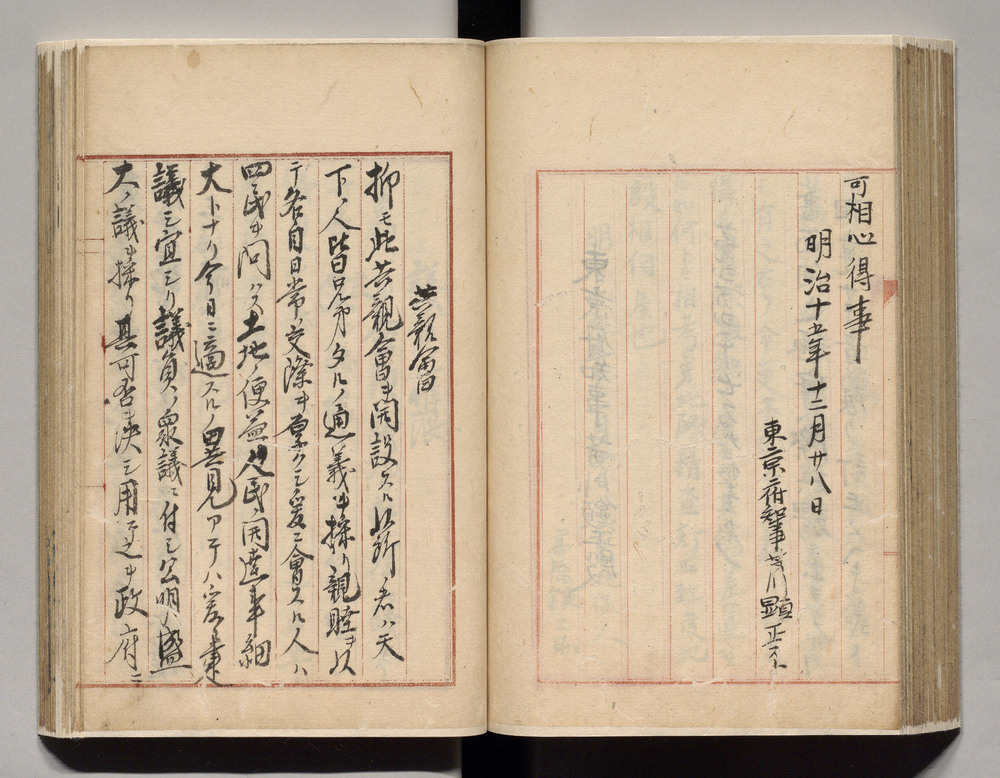 可相心得事
明治十五年十二月廿八日
東京府知事芳川顕正
共親會
抑モ此共親會ヲ開設スル所 者ハ天
下ノ人皆兄弟タルノ通義ヲ採リ親睦ヲ以
テ各自日常ノ交際ヲ厚クシ爰ニ會スル人ハ
四民ヲ問ハス土地ノ便益人民開達事細
大トナリ今日ニ適スルノ異見アラハ
議シ宜シク議員ノ衆議ニ付シ公明ハ盛
大ノ議ヲ採リ其可否ヲ決シ用テ之ヲ政府ニ